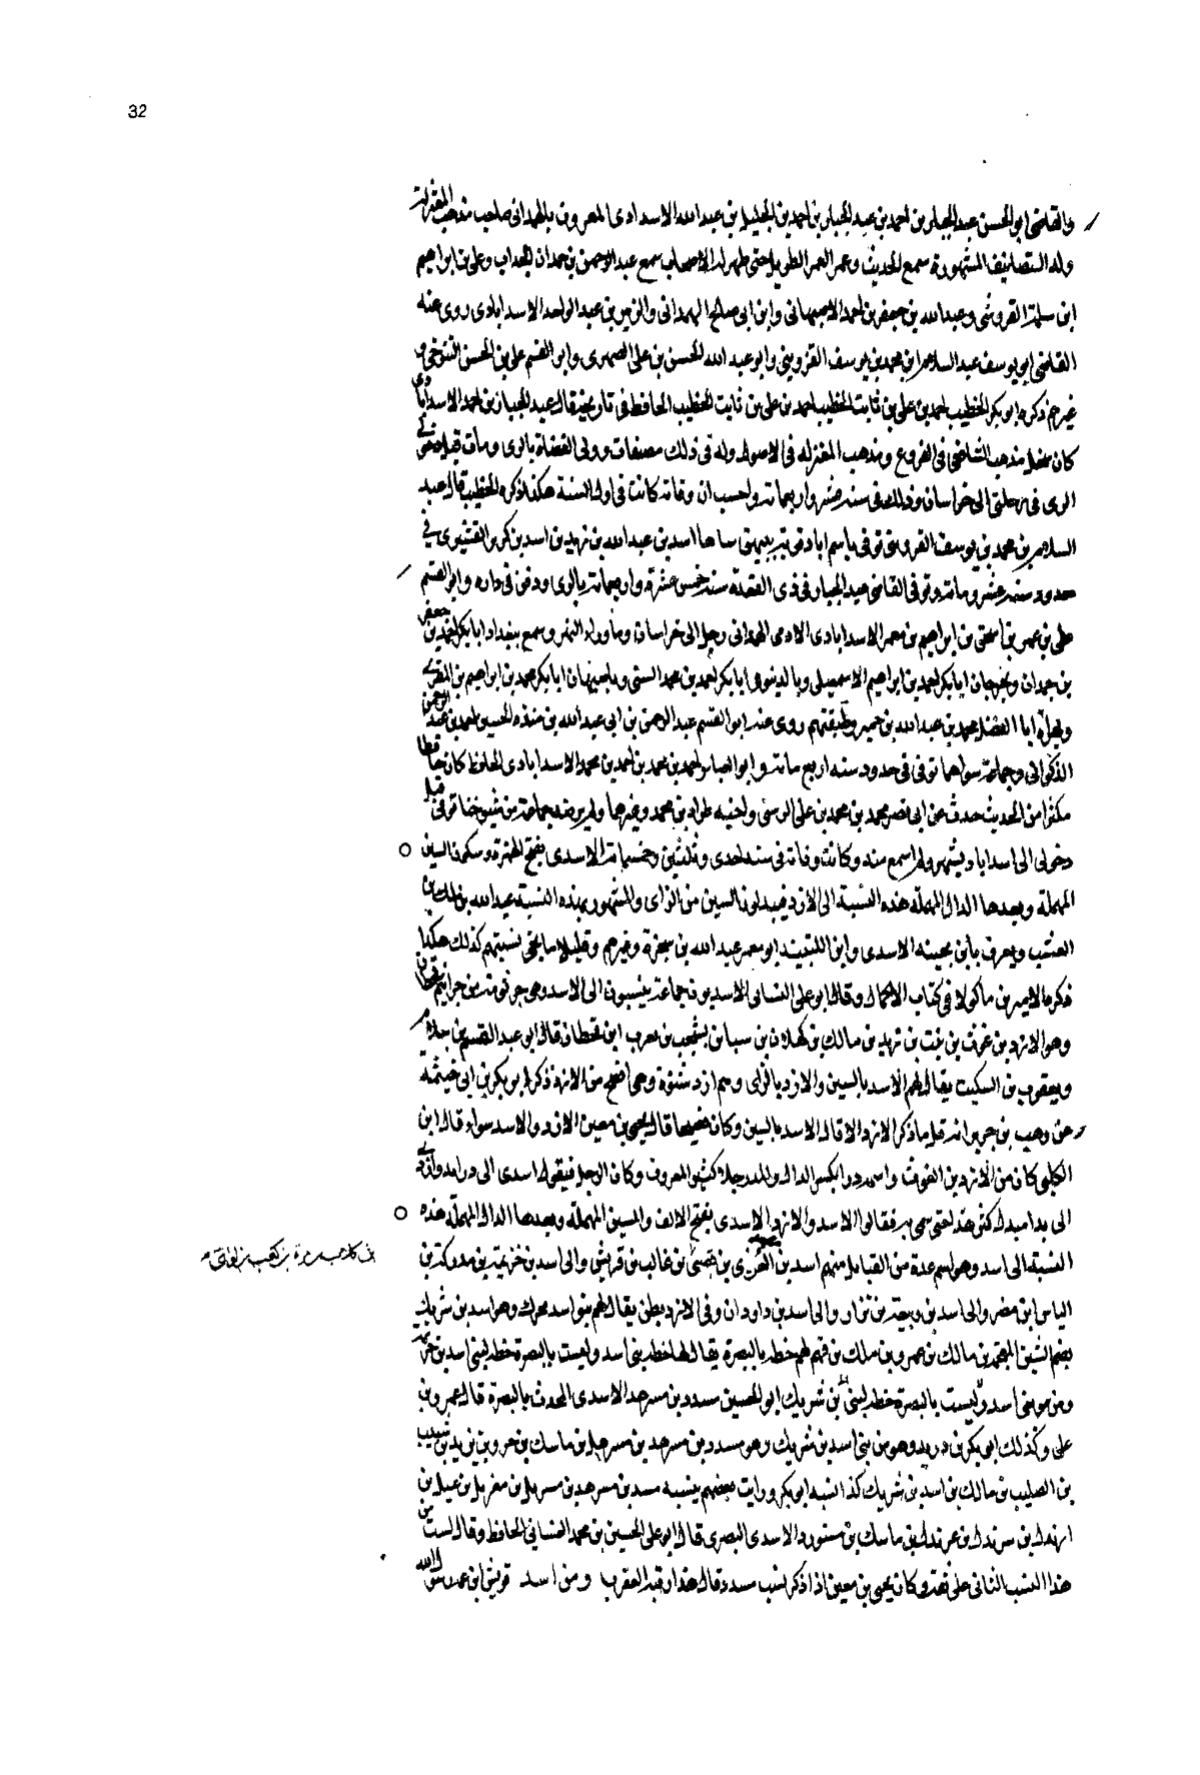 32
والقاضى ابو الحسن عبد الجبار بن احمد بن عبد الجبار بن احمد بن الخليل بن عبد الله الاسدابادى المعروف بالهمدانى صاحب مذهب المعتزلة
وله التصانيف المشهورة سمع الحديث وعمر العمر الطويل حتى ظهر له الاصحاب سمع عبد الرحمن بن حمدان الجلاب وعلى بن ابراهيم
ابن سلمة القزوينى وعبد الله بن جعفر بن احمد الاصبهانى وابن ابى صالح الهمدانى والزبير بن عبد الواحد الاسدابادى روى عنه
القاضى ابو يوسف عبد السلام ابن محمد بن يوسف القزوينى وابو عبد الله الحسن بن على الصيمرى وابو القسم على بن الحسن التنوخى و
غيرهم ذكره ابو بكر الخطيب احمد بن على بن ثابت الخطيب احمد بن على بن ثابت الخطيب الحافظ فى تاريخه فقال عبد الجبار بن احمد الاسدابادى
كان ينتحل مذهب الشافعى فى الفروع ومذهب المعتزله فى الاصول وله فى ذلك مصنفات وولى القضاة بالرى ومات قبل دخولى
الرى فى رحلتى الى خراسان وذلك فى سنة خمس عشر واربعمائة واحسب ان وفاته كانت فى اول السنة هكذا ذكره الخطيب قال عبد
السلام بن محمد بن يوسف القزوينى توفى
حدود سنة عشر ومائة وتوفى القاضى عبد الجبار فى ذى القعدة سنة خمس عشرة واربعمائة بالرى ودفن فى داره وابو القسم
على بن عمر بن اسحق بن ابراهيم بن معمر الاسدابادى الادمى الهمدانى رحل الى خراسان وما وراء النهر وسمع ببغداد ابا بكر احمد بن جعفر
بن حمدان وبجرجان ابا بكر احمد بن ابراهيم الاسمعيلى وبالدينور ابا بكر احمد بن محمد السنى وباصبهان ابا بكر محمد بن ابراهيم بن المقرى
وبهراة ابا الفضل محمد بن عبد الله بن خميرويه وطبقتهم روى عنه ابو القسم عبد الرحمن بن ابى عبد الله بن منده الحسين احمد بن عبد الرحمن
الذكوانى وجماعة سواهما توفى فى حدود سنه اربع مائة وابو العباس احمد بن محمد بن احمد بن محمد الاسدابادى الحافظ كان حافظا
مكثرا من الحديث حدث عن ابى نصر محمد بن محمد بن على الزينبى واخيه طراد بن محمد وغيرهما ولم يرضه جماعة من شيوخنا توفى قبل
دخولى الى اسداباد بشهر ولم اسمع منه وكانت وفاته فى سنه احدى وثلثين وخمسمائة الاسدى بفتح الهمزة وسكون السين
المهملة وبعدها الدال المهملة هذه النسبة الى الازد فيبدلون السين من الزاى والمشهور بهذه النسبة عبد الله بن مالك بن
القشب ويعرف بابن بحينه الاسدى وابن اللتبية ابو معمر عبد الله بن سخبرة وغيرهم وقليلا ما يجئ نسبتهم كذلك هكذا
ذكره الامير بن ماكولا فى كتاب الاكمال وقال ابو على الغسانى الاسديون جماعة ينسبون الى الاسد وهى جرثومة من جراثيم قحطان
وهو الازد بن غوث بن نبت بن زيد بن مالك بن كهلان بن سبا بن يشجب بن يعرب ابن قحطان قال ابو عبد القسم بن سلام
ويعقوب بن السكيت يقال لهم الاسد بالسين والازد بالزاى وهم ازد شنوة وهى افصح من الازد ذكر ابو بكر بن ابى خيثمة
عن وهب بن جرير انه قل ما ذكر الازد الا قال الاسد بالسين وكان فصيحا قال يحيى بن معين الازد والاسد سواء قال ابن
الكلبى كان من الازد بن الغوث واسمه درا بكسر الدال وبالمد رجلا كثير المعروف وكان الرجل فيقول اسدى الى درا يدا وازدى
الى يدا مبدل كثر هذا حتى سمى به فقالوا الاسد والازد الاسدى بفتح الالف والسين المهملة وبعدها الدال المهملة هذه
النسبة الى اسد وهو اسم عدة من القبايل منهم اسد بن العزى بن قصى بن غالب بن قريش والى اسد بن خزيمة بن مدركة بن
بن كلاب بن مرة بن كعب بن لوى
الياس ابن مضر والى اسد بن ربيعة بن نزار والى اسد بن داودان وفى الازد بطن يقال لهم بنو اسد محرك وهو اسد بن شريك
بضم الشين المعجمة بن مالك بن عمرو بن ملك بن فهم لهم خطة بالبصرة يقال لها خطة بنى اسد وليست بالبصرة خطة لبنى اسد بن خزيمة
ومن بنى اسد وليست بالبصرة خطة لبنى بن شريك ابو الحسين مسدد بن مسرهد الاسدى المحدث بالبصرة قال عمرو بن
على وكذلك ابو بكر بن دريد وهو من بنى اسد بن شريك وهو مسدد بن مسرهد بن مسرهل بن ماسك بن جرو بن يزيد بن شبيب
بن الصليب بن مالك بن اسد بن شريك كذا نسبه ابو بكر ورايت بعضهم ينسبه مسدد بن مسرهد بن مسربل بن مغربل بن
ارندل بن سرندل ابن عرندل بن ماسك بن مستورد الاسدى البصرى قال ابو على الحسين بن محمد الغسانى الحافظ وقال لست من
هذا النسب الثانى على ثقة وكان يحيى بن معين اذا ذكر نسب مسدد قال هذا رقية العقرب ومن اسد قريش